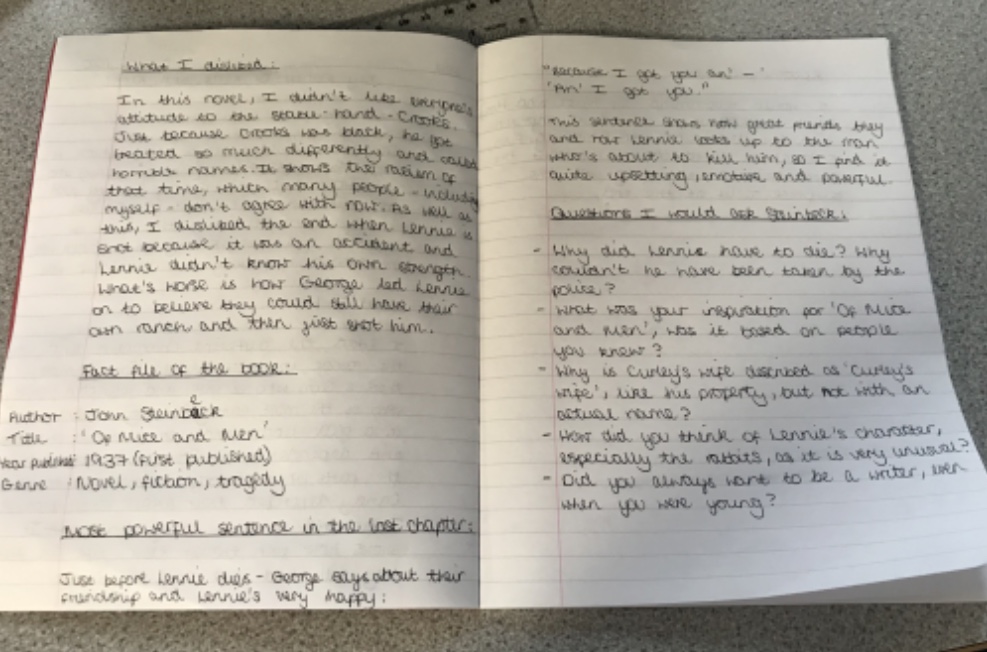 What I disliked:
In this novel, I didn't like everyone's
attitude to the stable-hand - Crooks.
Just because Crooks was black, he got
treated so much differently and called
horrible names. It shows the racism of
that time, which many people - including
myself - don't agree with now. As well as
this, I disliked the end when Lennie is
shot because it was an accident and
Lennie didn't know his own strength.
What's worse is how George led Lennie
on to believe they could still have their
own ranch and then just shot him.
Fact file of the book:
Author : John Steinbeck
Title : 'Of Mice and Men'
Year Published: 1937 (first published)
Genre : Novel, fiction, tragedy
Most powerful sentence in the last chapter:
Just before Lennie dies - George says about their
friendship and Lennie's very happy:
"Because I got you an' - '
'An' I got you."
This sentence shows how great friends they
and how Lennie looks up to the man
who's about to kill him, so I find it
quite upsetting, emotive and powerful.
Questions I would ask Steinbeck:
- Why did Lennie have to die? Why
couldn't he have been taken by the
police?
- What was your inspiration for 'Of Mice
and Men', was it based on people
you knew?
- Why is Curley's wife described as 'Curley's
wife', like his property, but not with an
actual name?
- How did you think of Lennie's character,
especially the rabbits, as it is very unusual?
- Did you always want to be a writer, even
when you were young?